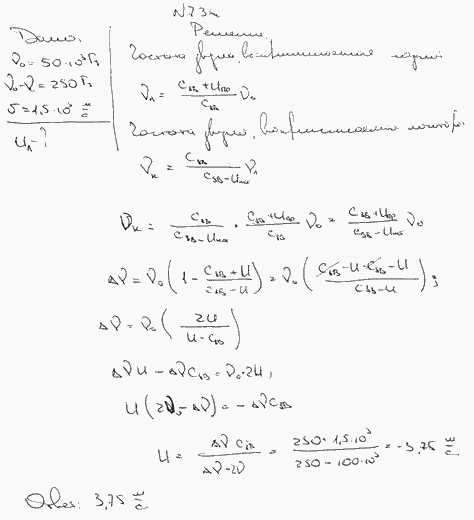 N73к
Дано:
ν₀ = 50·10³ Гц
ν₀-ν = 250 Гц
υ = 1,5·10³ м/с
u_л - ?
Решение
Частота звука, воспринимаемая лодкой
ν_л = (c_зв + u_пр)/c_зв ν₀
Частота звука, воспринимаемого
ν_к = c_зв/(c_зв - u_ис) ν_л
ν_к = c_зв/(c_зв - u_ис) · (c_зв + u_пр)/c_зв ν₀ = (c_зв + u_пр)/(c_зв - u_ис) ν₀
Δν = ν₀ (1 - (c_зв + u)/(c_зв - u)) = ν₀ ((c_зв - u - c_зв - u)/(c_зв - u));
Δν = ν₀ (2u/(u - c_зв))
Δν u - Δν c_зв = ν₀·2u,
u (2ν₀ - Δν) = - Δν c_зв
u = Δν c_зв/(Δν - 2ν) = 250·1,5·10³/(250 - 100·10³) = -3,75 м/с
Ответ: 3,75 м/с